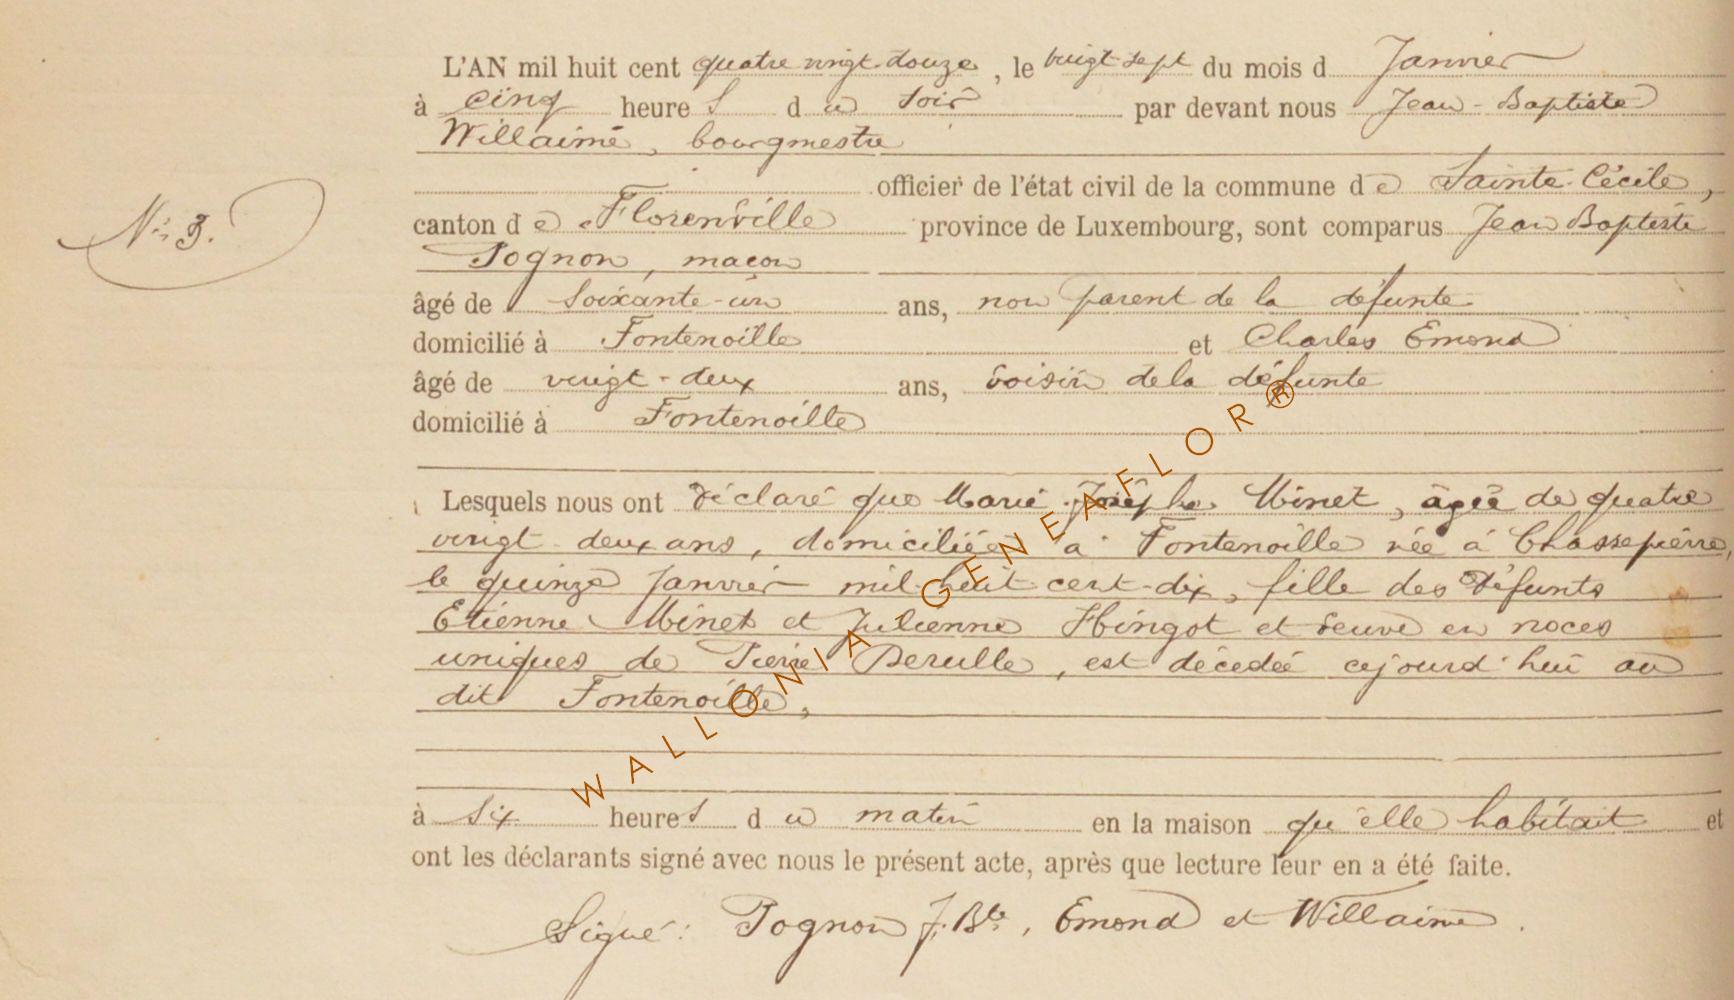 L'AN mil huit cent quatre vingt-douze, le vingt-sept du mois d Janvier
à cinq heures du soir par devant nous Jean-Baptiste
Willaime, bourgmestre
officier de l'état civil de la commune de Sainte-Cécile,
N° 3.
canton de Florenville province de Luxembourg, sont comparus Jean Baptiste
Pognon, maçon
âgé de soixante-un ans, non parent de la défunte
domicilié à Fontenoille et Charles Emond
âgé de vingt-deux ans, voisin de la défunte
domicilié à Fontenoille
Lesquels nous ont déclaré que Marie Josèphe Minet, âgée de quatre
vingt deux ans, domiciliée à Fontenoille née à Chassepierre,
le quinze Janvier mil-huit cent-dix, fille des défunts
Etienne Minet et Julienne Hingot et veuve en noces
uniques de Pierre Derulle, est décedée cejourd'hui au
dit Fontenoille,
à six heures du matin en la maison qu'elle habitait et
ont les déclarants signé avec nous le présent acte, après que lecture leur en a été faite.
Signé: Pognon J. Bte, Emond et Willaime.
WALLONIA - GENEAFLOR®